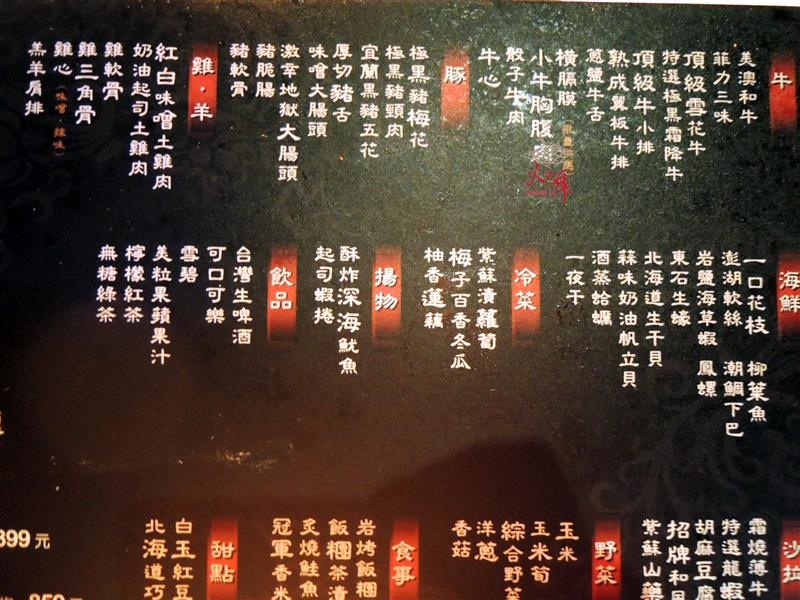 牛
美澳和牛
菲力三味
頂級雪花牛
特選極黑霜降牛
頂級牛小排
熟成翼板牛排
蔥鹽牛舌
橫膈膜
小牛胸腹
骰子牛肉
牛心
豚
極黑豬梅花
極黑豬頸肉
宜蘭黑豬五花
厚切豬舌
味噌大腸頭
激辛地獄大腸頭
豬脆腸
豬軟骨
雞·羊
紅白味噌土雞肉
奶油起司土雞肉
雞軟骨
雞三角骨
雞心(味噌·辣味)
羔羊肩排
海鮮
一口花枝 柳葉魚
澎湖軟絲 潮鯛下巴
岩鹽海草蝦 鳳螺
東石生蠔
北海道生干貝
蒜味奶油帆立貝
酒蒸蛤蠣
一夜干
冷菜
紫蘇漬蘿蔔
梅子百香冬瓜
柚香蓮藕
揚物
酥炸深海魷魚
起司蝦捲
飲品
台灣生啤酒
可口可樂
雪碧
美粒果蘋果汁
檸檬紅茶
無糖綠茶
沙拉
霜燒薄牛
特選龍蝦
胡麻豆腐
招牌和風
紫蘇山藥
野菜
玉米
玉米筍
綜合野菜
洋蔥
香菇
食事
岩烤飯糰
飯糰茶漬
炙燒鮭魚
冠軍香米
甜點
白玉紅豆
北海道巧
899元
859元